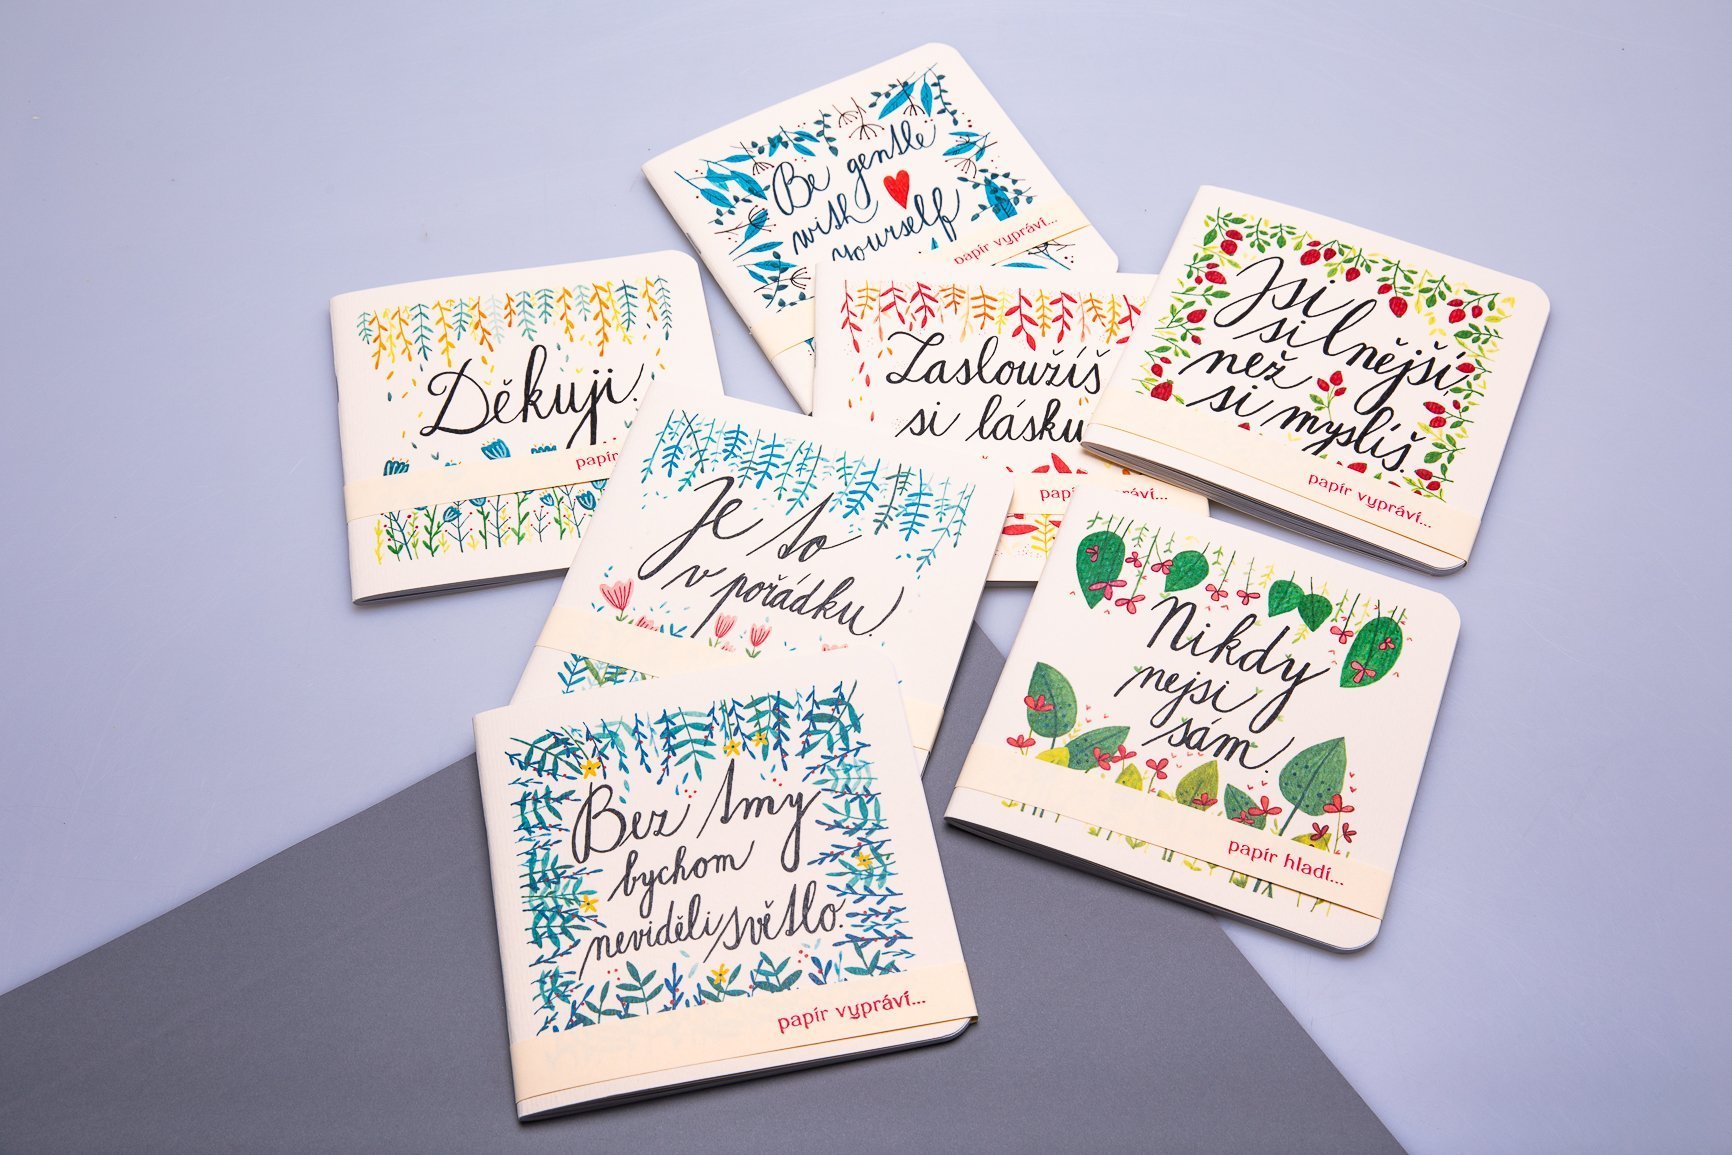 Be gentle
with
yourself
papír vypráví...
Děkuji.
papír
Zasloužíš
si lásku
papír vypráví...
Jsi
silnější,
než
si myslíš.
papír vypráví...
Je to
v pořádku.
Nikdy
nejsi
sám.
papír hladí...
Bez tmy
bychom
neviděli světlo.
papír vypráví...